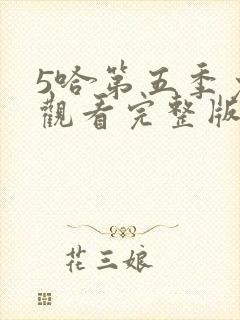 5哈第五季
觀看完整版
花三娘